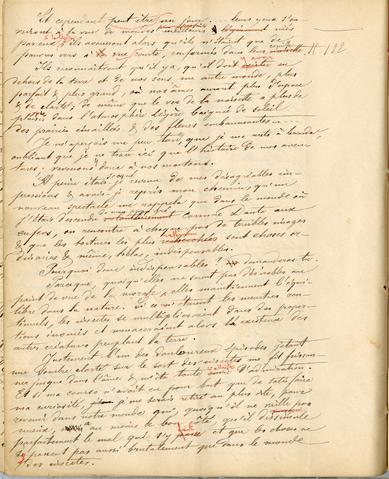 Et cependant peut-être un jour.... leurs yeux s'ou
à la vue de mondes meilleurs &
ils avoueront alors qu'ils n'étaient que de
pauvres vers à confinés dans leur 182
Ils reconnaîtront qu'il y a, qu'il doit y avoir en
dehors de la terre et de nos sens, un autre monde, plus
parfait & plus grand, où nos âmes auront plus d'espace
& de clarté; de même que le ver de la noisette a plus de
place dans l'atmosphère légère baignée de soleil
des prairies émaillées & des fleurs embaumantes....
Je m'aperçois un peu tard, que je me mets à
oubliant que je ne trace ici que l'histoire de mes aven
tures; revenons donc à nos moutons.
A peine étais-je revenu de mes désagréables im-
pressions & avais-je repris mon chemin, qu'un
nouveau spectacle me rappela que dans le monde où
j'étais descendu comme Dante aux
enfers, on rencontre à chaque pas de terribles images
& que les tortures les plus sont choses or-
dinaires & même, hélas, indispensables.
Pourquoi donc indispensables? demanderas-tu.
Parceque, quoiqu'elles ne soient pas désirables au
point de vue de la morale, elles maintiennent l'équi-
libre dans la nature. Si ces meurtres con-
tinuels, les insectes se multiplieraient dans des propor-
tions inouïes et menaceraient alors l'existence des
autres créatures peuplant la terre.
Justement l'un des douloureux épisodes jetant
une sombre clarté sur le sort des insectes me fit frisson-
ner jusque dans l'âme & m'ôta toute d'admiration.
Et si ma course n'avait eu pour but que de satisfaire
ma curiosité, je me serais retiré au plus vite, pour
revenir dans notre monde qui, quoiqu'il ne vaille pas
mieux, a au moins ce bon côté, qu'il dissimule
parfaitement le mal qui s'y fait et que les choses ne
s'y passent pas aussi brutalement que dans le monde
des insectes.